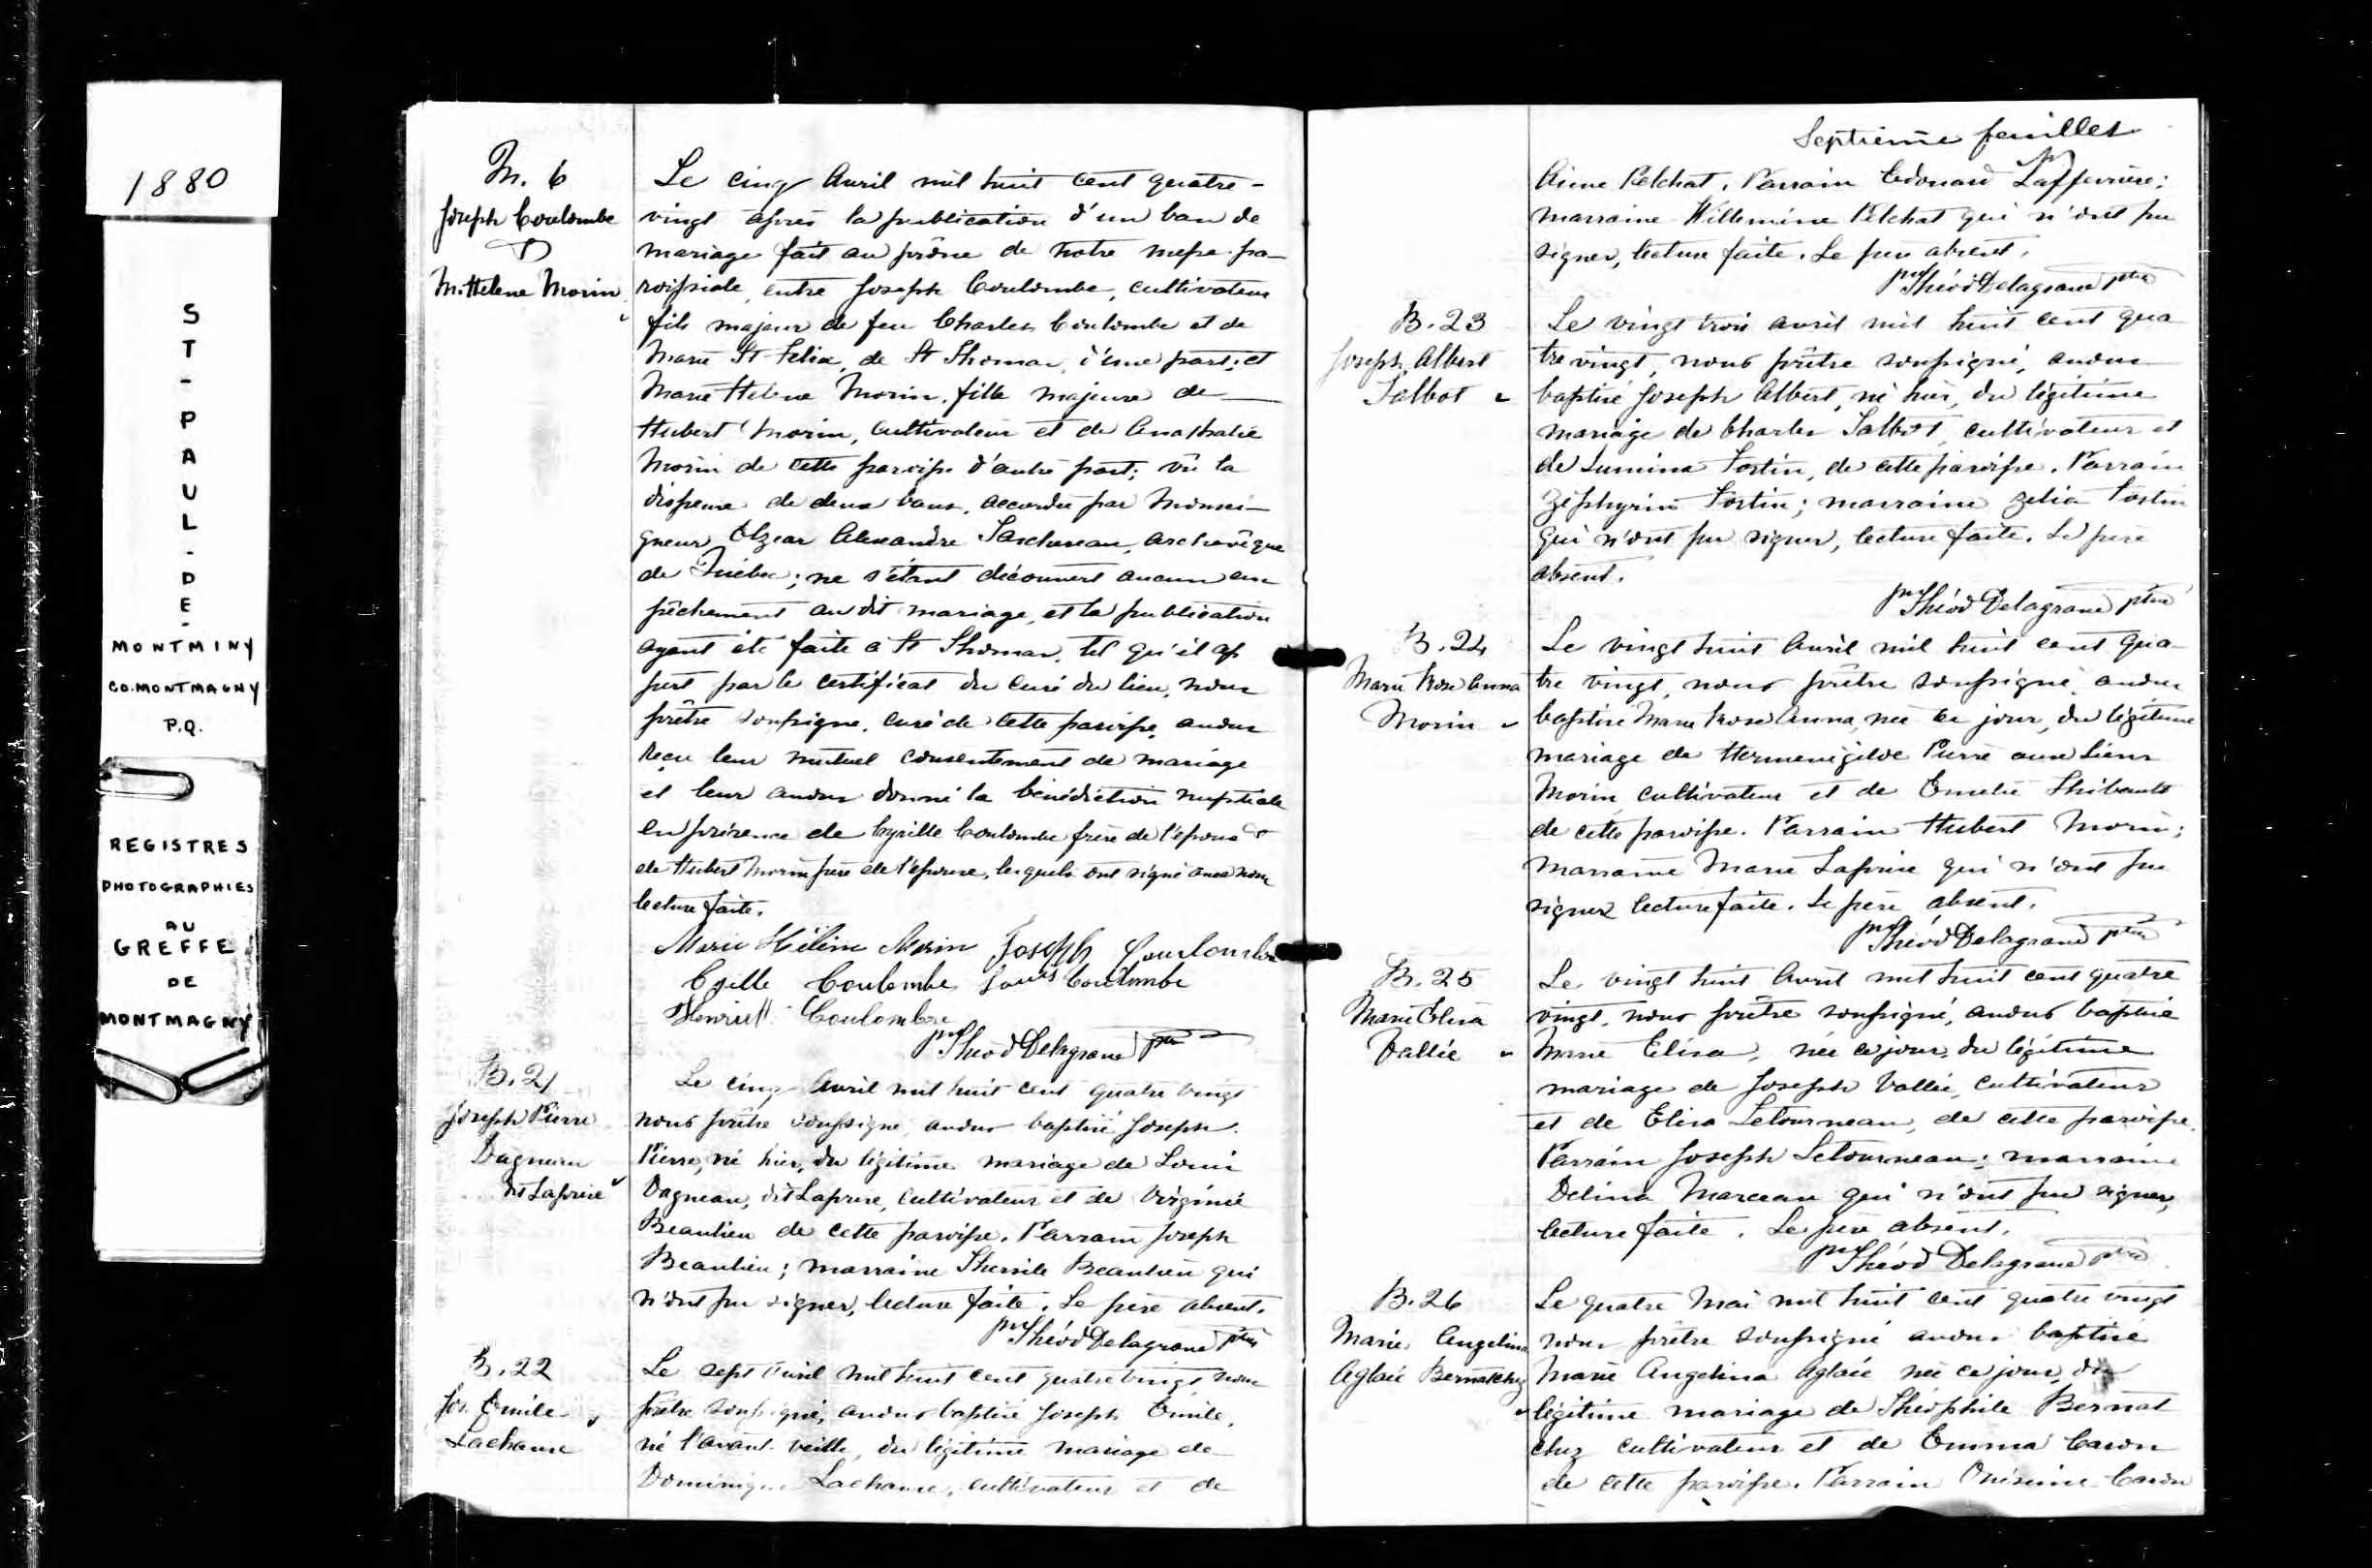 1880
ST-PAUL-DE-
MONTMINY
CO. MONTMAGNY
P.Q.
REGISTRES
PHOTOGRAPHIES
AU
GREFFE
DE
MONTMAGNY
M. 6
Joseph Coulombe
&
M. Helene Morin
Le cinq Avril mil huit cent quatre-
vingt après la publication d'un ban de
mariage fait au prône de notre messe pa-
roissiale, entre Joseph Coulombe, cultivateur
fils majeur de feu Charles Coulombe et de
Marie St Felix, de St Thomas, d'une part; et
Marie Helene Morin, fille majeure de
Hubert Morin, cultivateur et de Anathalie
Morin de cette paroisse d'autre part; vu la
dispense de deux bans, accordée par Monsei-
gneur Elzear Alexandre Taschereau, archevêque
de Québec; ne s'étant découvert aucun em
pêchement au dit mariage, et la publication
ayant été faite à St Thomas, tel qu'il ap
pert par le certificat du curé du lieu, nous
prêtre soussigné, curé de cette paroisse, avons
reçu leur mutuel consentement de mariage
et leur avons donné la bénédiction nuptiale
en présence de Cyrille Coulombe frère de l'époux &
de Hubert Morin père de l'épouse, lesquels ont signé avec nous
lecture faite.
Marie Hélène Morin Joseph Coulombe
Cyille Coulombe Louis Coulombe
Henriett Coulombe
Théod Delagrave ptre
B. 21
Joseph Pierre
Dagneau
dit Laprise
Le cinq Avril mil huit cent quatre vingt
nous prêtre soussigné, avons baptisé Joseph
Pierre, né hier, du légitime mariage de Louis
Dagneau, dit Laprise, cultivateur et de Virginie
Beaulieu de cette paroisse. Parrain Joseph
Beaulieu; marraine Thersile Beaulieu qui
n'ont pu signer, lecture faite. Le père absent.
Théod Delagrave ptre
B. 22
Jos. Emile
Lachance
Le sept Avril mil huit cent quatre vingt nous
prêtre soussigné, avons baptisé Joseph Emile,
né l'avant veille, du légitime mariage de
Dominique Lachance, cultivateur et de
Septième feuillet
Aimé Pelchat. Parrain Edouard Lafferrière;
marraine Willemine Pelchat qui n'ont pu
signer, lecture faite. Le père absent.
Théod Delagrave ptre
B. 23
Joseph Albert
Talbot
Le vingt trois avril mil huit cent qua
tre vingt, nous prêtre soussigné, avons
baptisé Joseph Albert, né hier, du légitime
mariage de Charles Talbot, cultivateur et
de Lumina Fortin, de cette paroisse. Parrain
Zéphyrin Fortin; marraine Zelia Fortin
qui n'ont pu signer, lecture faite. Le père
absent.
Théod Delagrave ptre
B. 24
Marie Rose Anna
Morin
Le vingt huit Avril mil huit cent qua-
tre vingt, nous prêtre soussigné, avons
baptisé Marie Rose Anna, née ce jour, du légitime
mariage de Hermenégilde Pierre aux Liens
Morin, cultivateur et de Emelie Thibault
de cette paroisse. Parrain Hubert Morin;
marraine Marie Laprise qui n'ont pu
signer lecture faite. Le père absent.
Théod Delagrave ptre
B. 25
Marie Elisa
Vallée
Le vingt huit Avril mil huit cent quatre
vingt, nous prêtre soussigné, avons baptisé
Marie Elisa, née ce jour, du légitime
mariage de Joseph Vallée, cultivateur
et de Elisa Letourneau, de cette paroisse.
Parrain Joseph Letourneau; marraine
Delina Marceau qui n'ont pu signer,
lecture faite. Le père absent.
Théod Delagrave ptre
B. 26
Marie Angelina
Aglaée Bernatchez
Le quatre Mai mil huit cent quatre vingt
nous prêtre soussigné avons baptisé
Marie Angelina Aglaée née ce jour, du
légitime mariage de Théophile Bernat
chez cultivateur et de Emma Caron
de cette paroisse. Parrain Onésime Caron